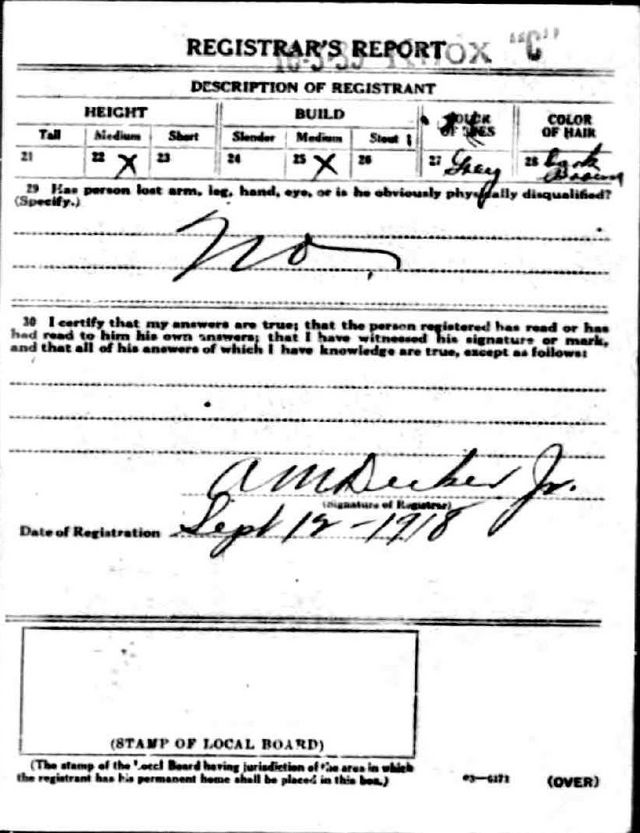 REGISTRAR'S REPORT
KNOX "C"
DESCRIPTION OF REGISTRANT
HEIGHT BUILD COLOR OF EYES COLOR OF HAIR
Tall Medium Short Slender Medium Stout
21 22 X 23 24 25 X 26 27 Gray 28 Dark Brown
29 Has person lost arm, leg, hand, eye, or is he obviously physically disqualified?
(Specify.)
No.
30 I certify that my answers are true; that the person registered has read or has
had read to him his own answers; that I have witnessed his signature or mark,
and that all of his answers of which I have knowledge are true, except as follows:
A M Decker Jr.
(Signature of Registrar)
Date of Registration Sept 12 - 1918
(STAMP OF LOCAL BOARD)
(The stamp of the Local Board having jurisdiction of the area in which
the registrant has his permanent home shall be placed in this box.)
03—6171 (OVER)